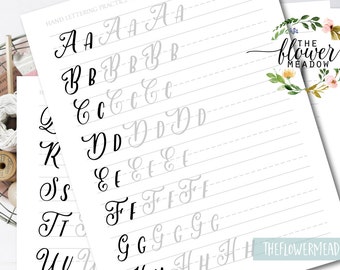 HAND LETTERING PRACTICE
A A A A A A
B B B B B B
C C C C C C
D D D D D D
E E E E E E
F F F F F F
G G G G G G
H H H H H H
R
S s
T t
THE
flower
MEADOW
THEFLOWERMEAD